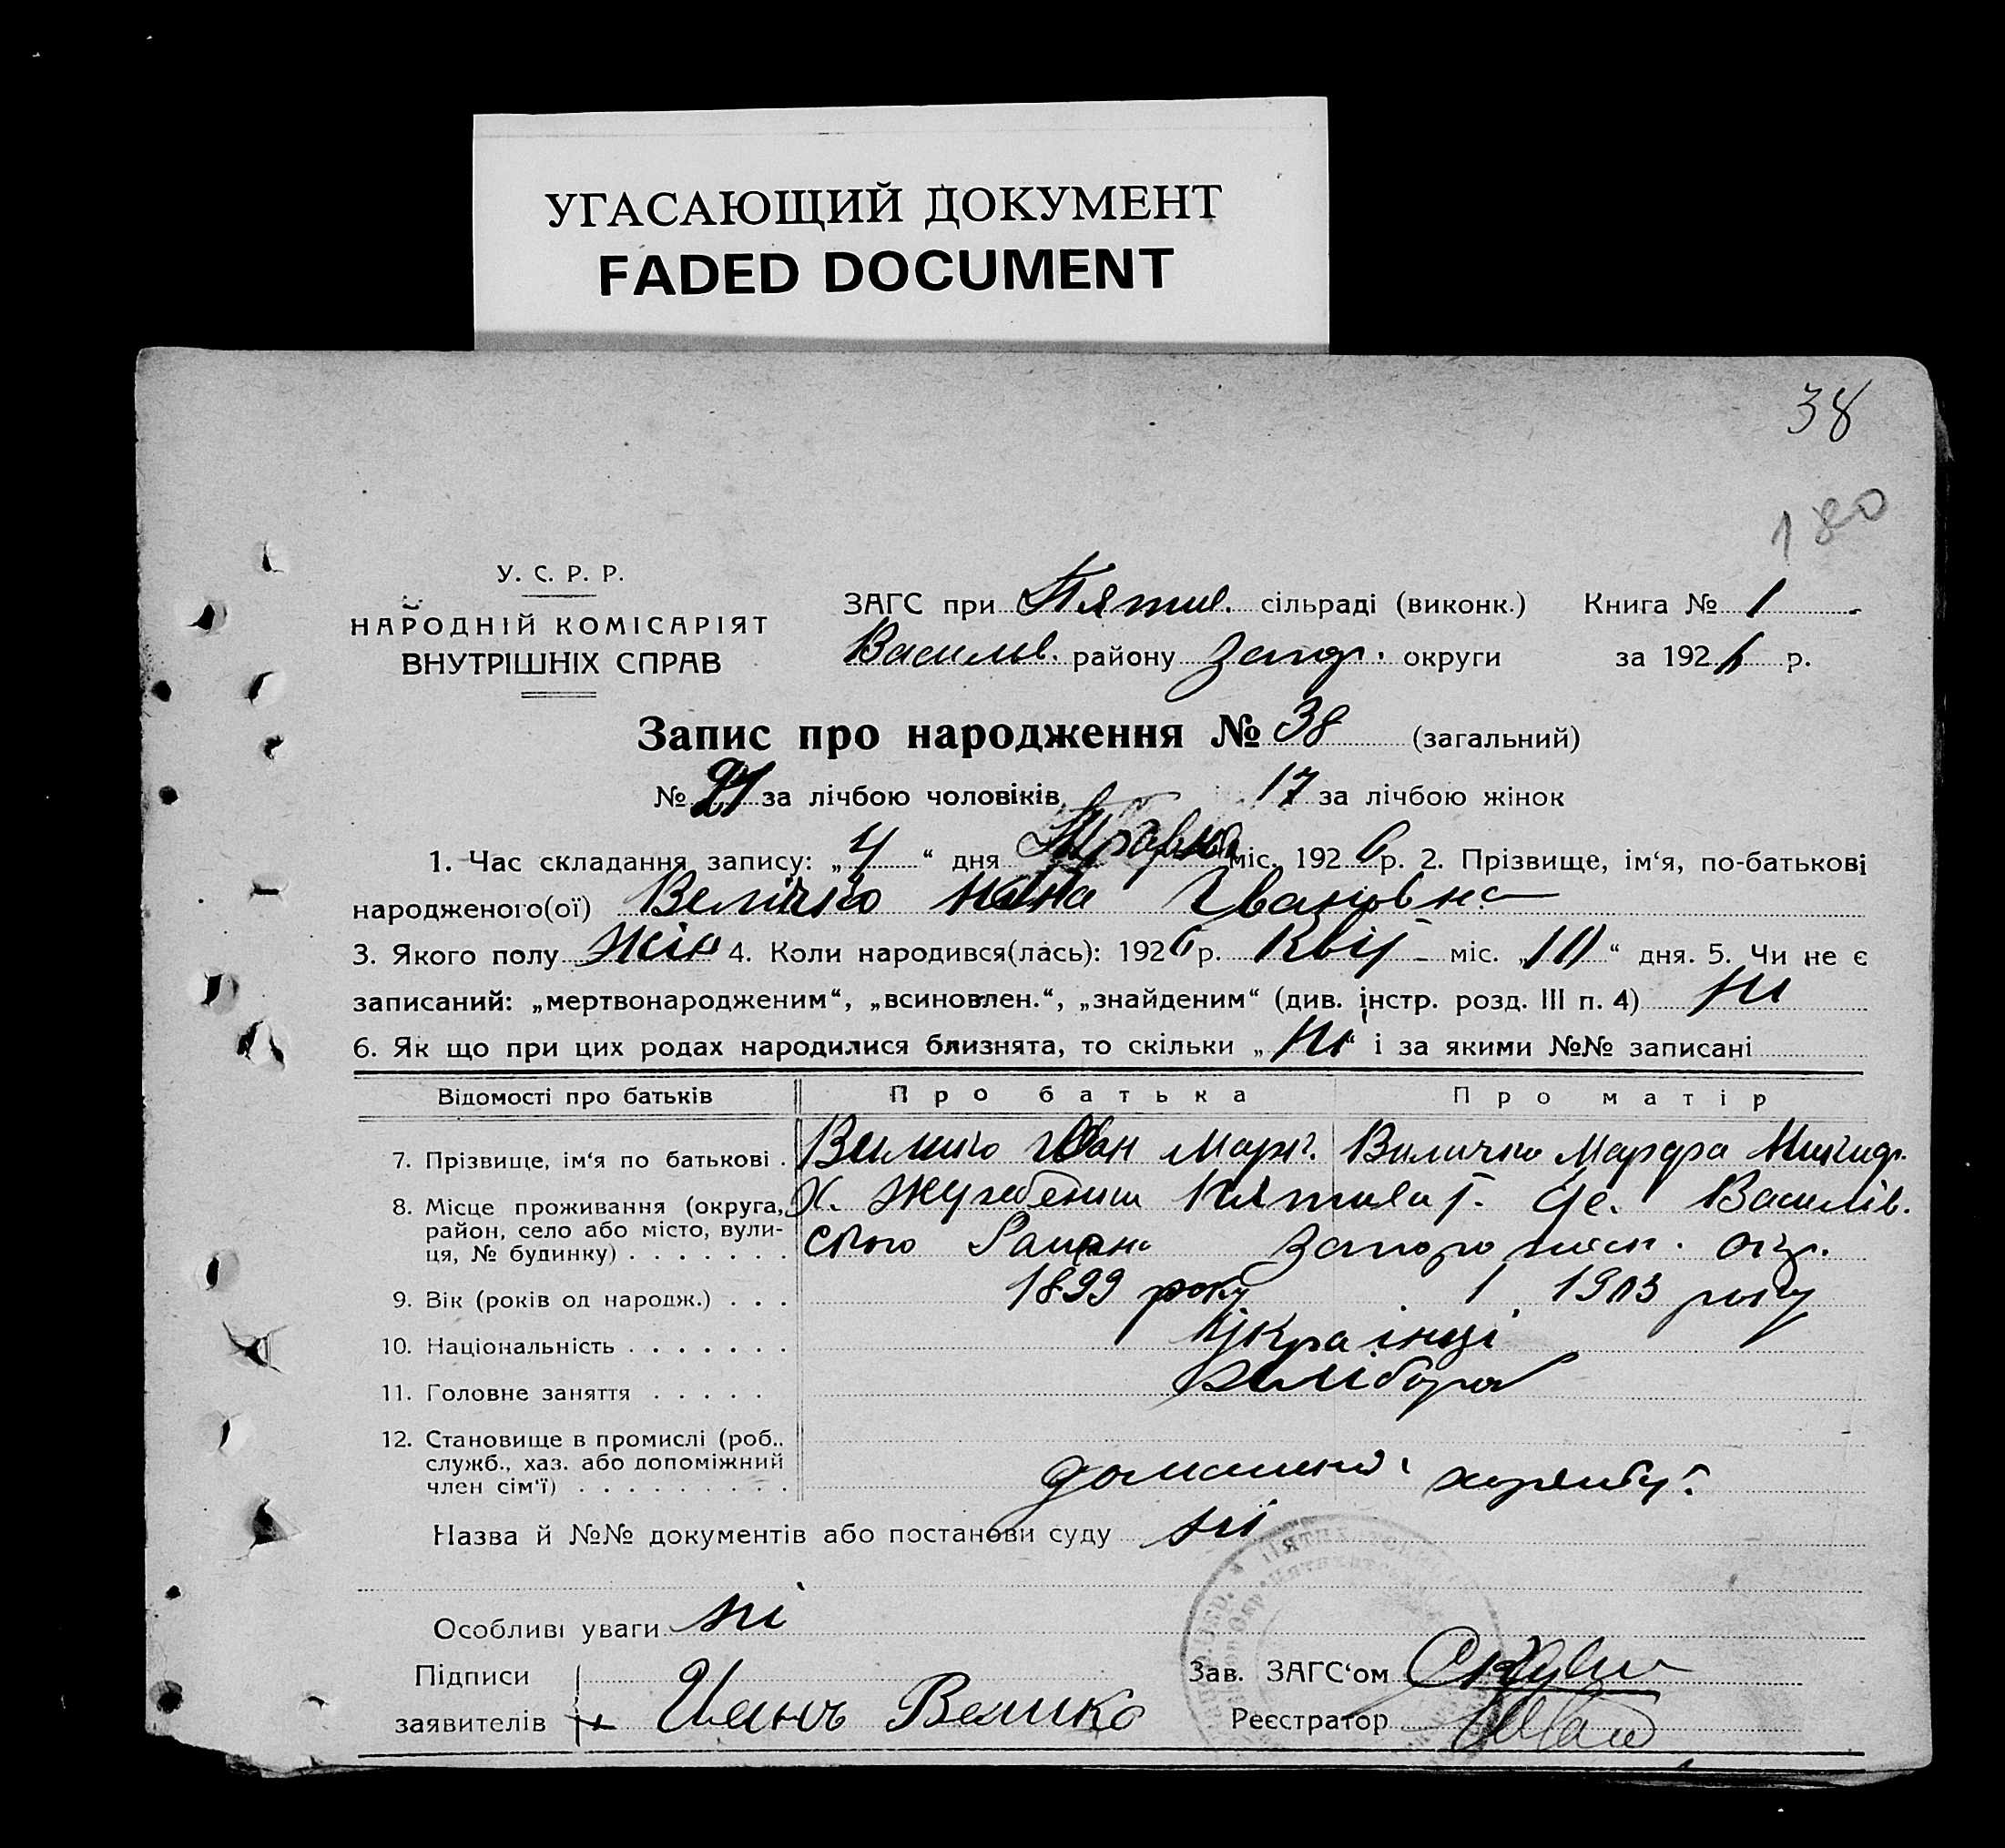 УГАСАЮЩИЙ ДОКУМЕНТ
FADED DOCUMENT
38
180
У. С. Р. Р.
НАРОДНІЙ КОМІСАРІЯТ
ВНУТРІШНІХ СПРАВ
ЗАГС при Пятих. сільраді (виконк.) Книга № 1
Василів. району Запор. округи за 1926 р.
Запис про народження № 38 (загальний)
№ 21 за лічбою чоловіків 17 за лічбою жінок
1. Час складання запису: „4“ дня Травня міс. 1926 р. 2. Прізвище, ім‘я, по-батькові
народженого(ої) Велічко Ивановна
3. Якого полу Жін 4. Коли народився(лась): 1926 р. Квіт міс. „10“ дня. 5. Чи не є
записаний: „мертвонародженим“, „всиновлен.“, „знайденим“ (див. інстр. розд. III п. 4) ні
6. Як що при цих родах народилися близнята, то скільки „ні“ і за якими №№ записані
Відомості про батьків Про батька Про матір
7. Прізвище, ім‘я по батькові . Іван Марк. Величко Марфа
8. Місце проживання (округа, Х. С/Р. Василів.
район, село або місто, вули- ського Запорожськ. окр.
ця, № будинку) . . . . . . .
9. Вік (років од народж.) . . . 1899 року 1903 року
10. Національність . . . . . . . Українці
11. Головне заняття . . . . . Хлібороб
12. Становище в промислі (роб..
служб., хаз. або допоміжний
член сім‘ї) . . . . . . . . .
Назва й №№ документів або постанови суду ні
Особливі уваги ні
Підписи Зав. ЗАГС‘ом
заявителів Иванъ Величко Реєстратор